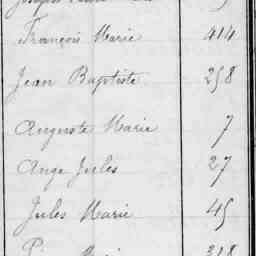 François Marie 414
Jean Baptiste 258
Auguste Marie 7
Ange Jules 27
Jules Marie 45
318